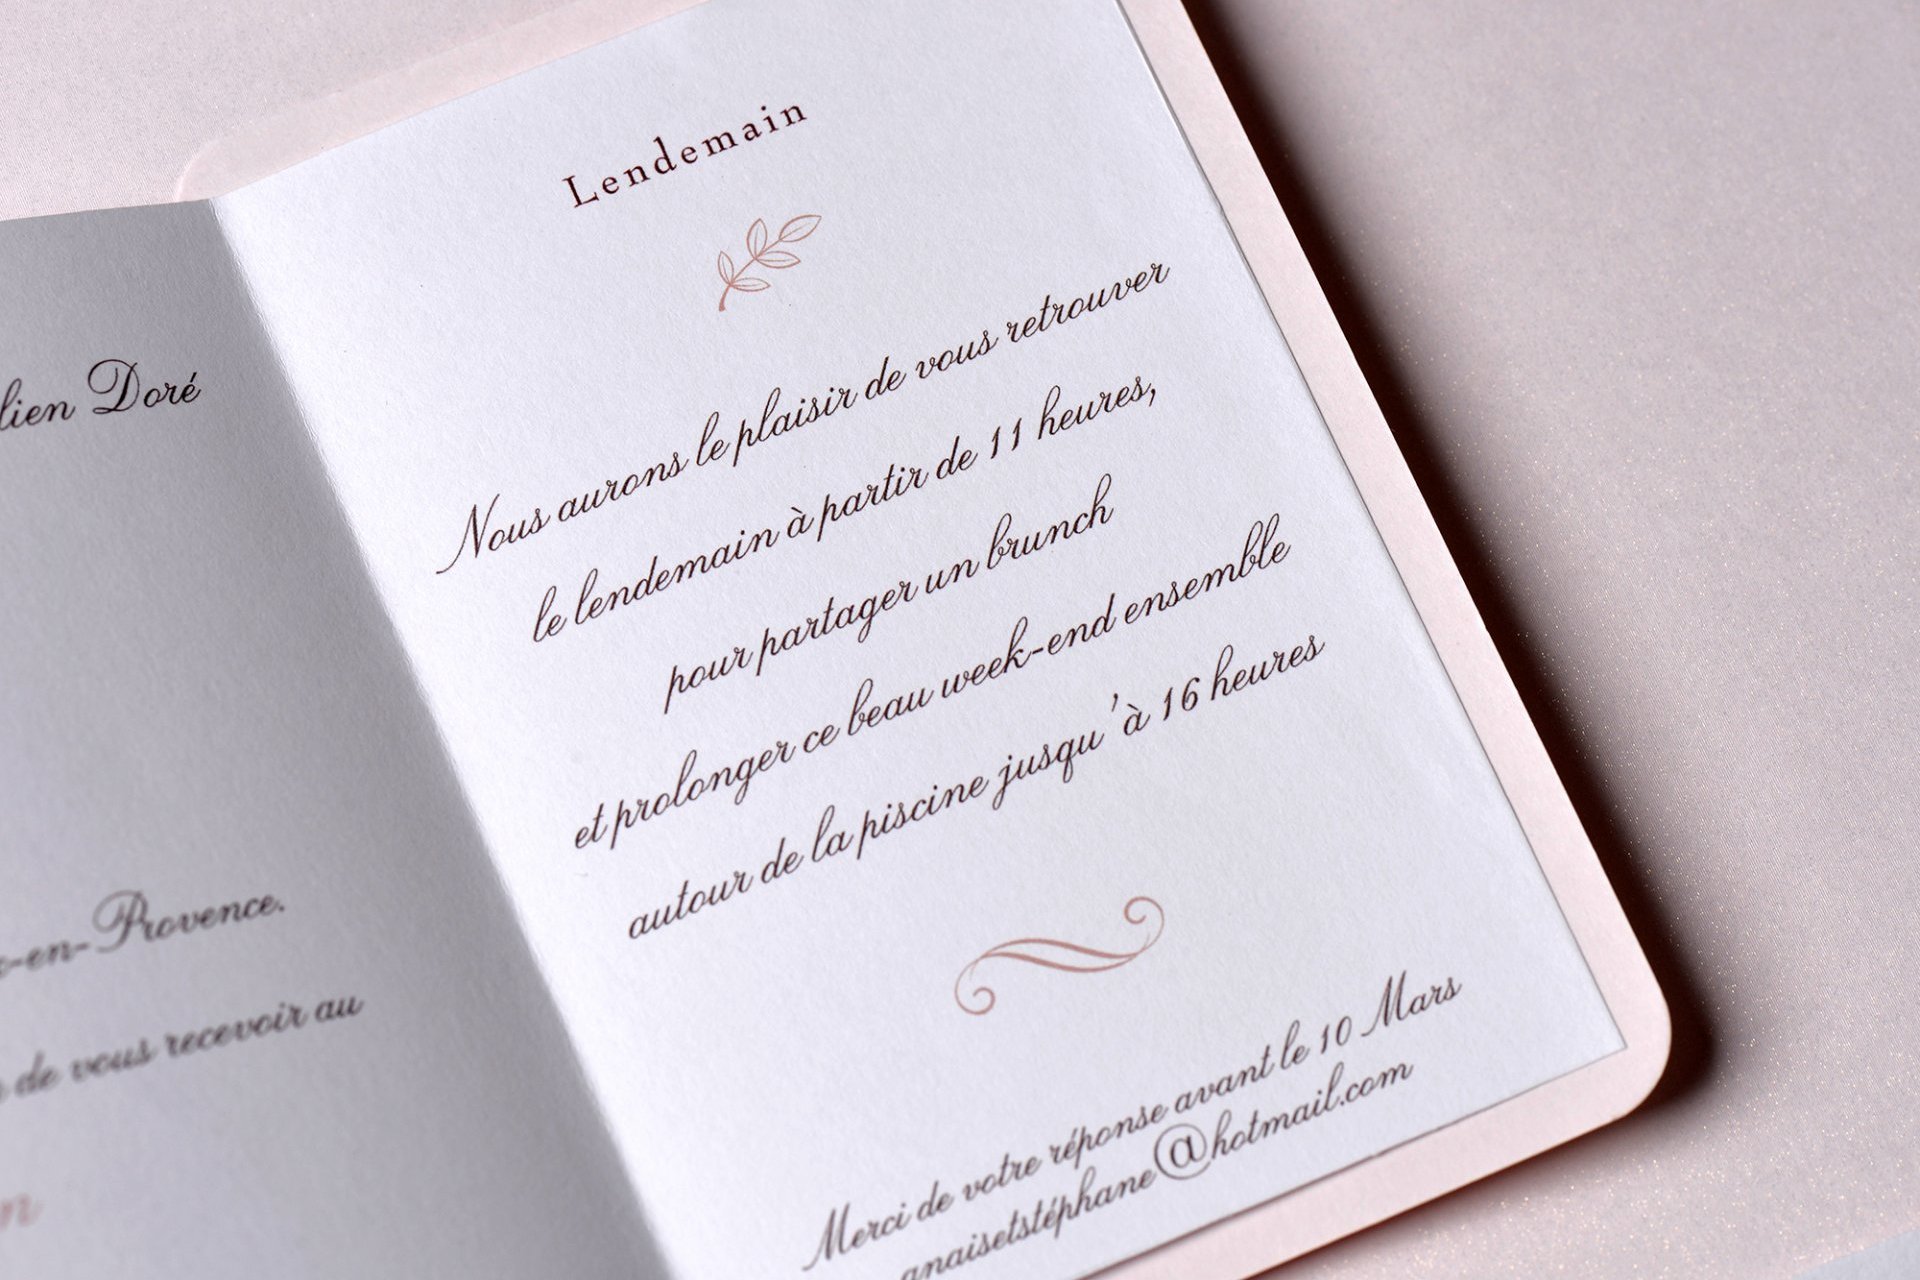 Doré
Provence.
de vous recevoir au
Lendemain
Nous aurons le plaisir de vous retrouver
le lendemain à partir de 11 heures,
pour partager un brunch
et prolonger ce beau week-end ensemble
autour de la piscine jusqu'à 16 heures
Merci de votre réponse avant le 10 Mars
anaisetstéphane@hotmail.com